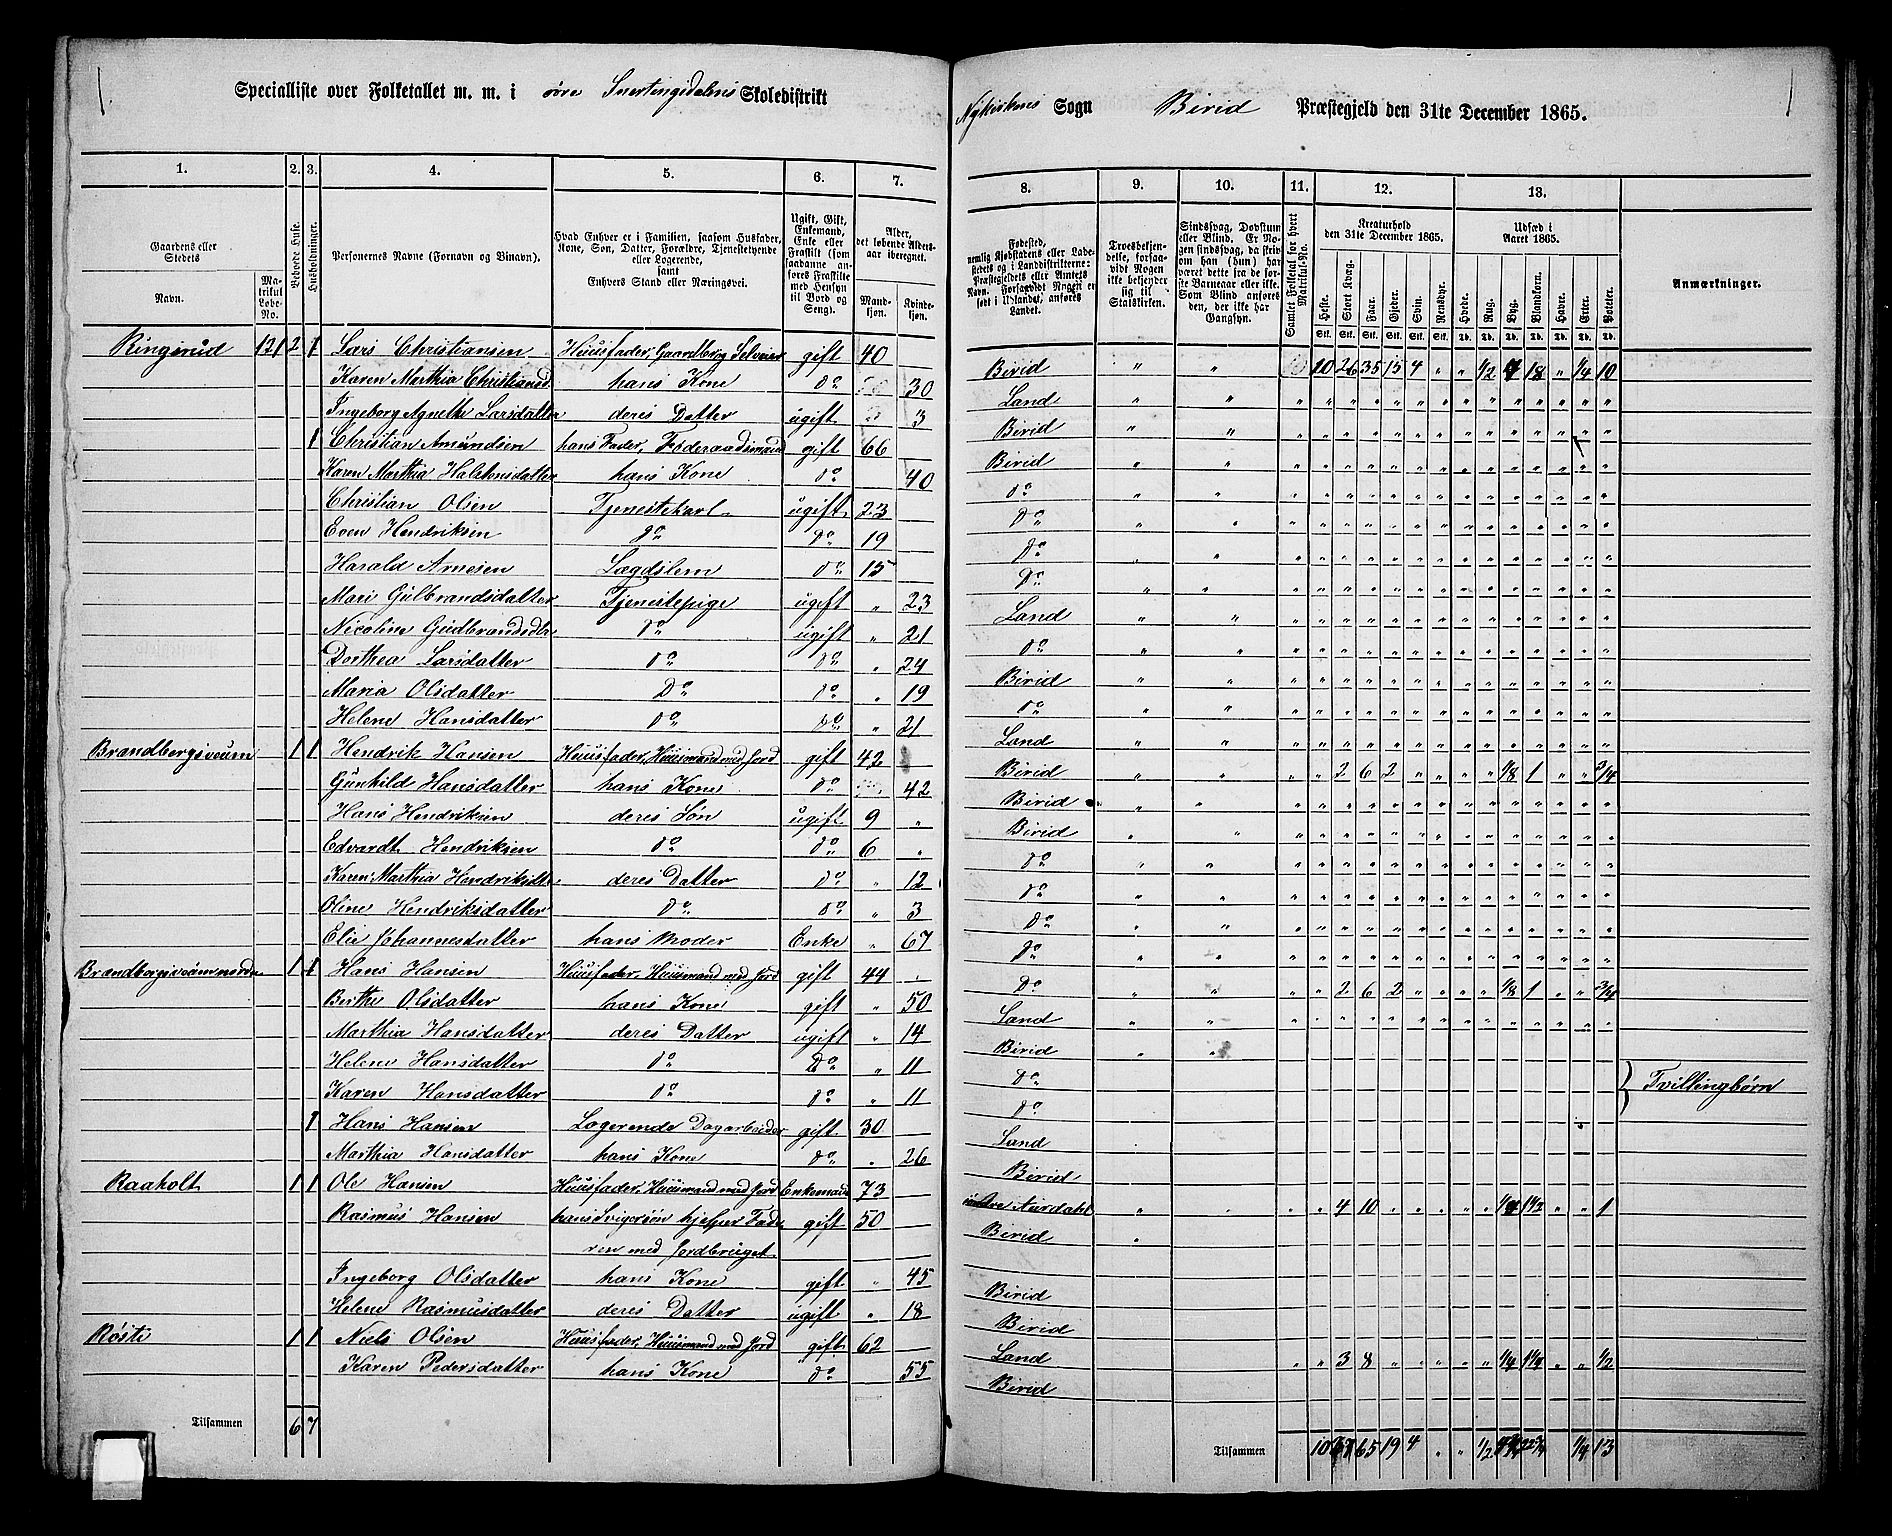 Specialliste over Folketallet m. m. i øvre Snertingdalens Skoledistrikt
Nykirkens Sogn Birid Præstegjeld den 31te December 1865.
1. 2. 3. 4. 5. 6. 7.
8. 9. 10. 11. 12. 13.
Gaardens eller Stedets Navn. Matrikul Løbe-No. Beboede Huse. Husholdninger. Personernes Navne (Fornavn og Binavn).
Hvad Enhver er i Familien, saasom Husfader, Kone, Søn, Datter, Forældre, Tjenestetyende eller Logerende, samt Enhvers Stand eller Næringsvei.
Ugift, Gift, Enkemand, Enke eller Fraskilt (som saadanne anføres Fraskilte med Hensyn til Bord og Seng).
Alder, det løbende Aldersaar iberegnet. Mandkjøn. Kvindekjøn.
Fødested, nemlig Kjøbstadens eller Ladestedets og i Landdistrikterne: Præstegjeldets eller Amtets Navn. Forsaavidt Nogen er født i Udlandet, anføres Landet.
Troesbekjendelse, forsaavidt Nogen ikke bekjender sig til Statskirken.
Sindssvag, Døvstum eller Blind. Er Nogen sindssvag, da skrives om han (hun) har været dette fra de første Barneaar eller ikke. Som Blind anføres den, der ikke har Gangsyn.
Samlet Folketal for hvert Matrikul-No.
Kreaturhold den 31te December 1865. Heste. Stort Kvæg. Faar. Gjeder. Svin. Rensdyr.
Udsæd i Aaret 1865. Hvede. Rug. Byg. Blandkorn. Havre. Erter. Poteter.
Anmærkninger.
Ringsrud 121 2 1 Lars Christiansen Huusfader, Gaardbrug Selveier gift 40 Birid 10 26 35 15 4 " " 1/2 7 18 " 1/4 10
Karen Marthia Christiansd hans Kone do 30 Land
Ingeborg Agnethe Larsdatter deres Datter ugift 3 Birid
1 Christian Amundsen hans Fader, Føderaadsmand gift 66 Birid
Karen Marthia Halstensdatter hans Kone do 40 do
Christian Olsen Tjenestekarl ugift 23 Do
Even Hendriksen do Do 19 Do
Harald Arnesen Lægdslem do 15 Do
Mari Gulbrandsdatter Tjenestepige ugift " 23 Land
Nicoline Gudbrandsdtr do ugift " 21 do
Dorthea Larsdatter do do " 24 Birid
Maria Olsdatter Do do " 19 do
Helene Hansdatter do do " 21 Land
Brandbergsveum 1 1 Hendrik Hansen Huusfader, Huusmand med Jord gift 42 Birid " " 2 6 2 " " " " 1/8 1 " " 3/4
Gunhild Hansdatter hans Kone do 42 Birid
Hans Hendriksen deres Søn ugift 9 " Birid
Edvardt Hendriksen do do 6 " do
Karen Marthia Hendriksdtr deres Datter do " 12 do
Oline Hendriksdatter do do " 3 Do
Elie Johannesdatter hans Moder Enke " 67 do
Brandbergsveum nordre 1 1 Hans Hansen Huusfader, Huusmand med Jord gift 44 Do " " 2 6 2 " " " " 1/8 1 " " 3/4
Berthe Olsdatter hans Kone gift " 50 Land
Marthia Hansdatter deres Datter ugift " 14 Birid
Helene Hansdatter do Do " 11 Do
Karen Hansdatter do do " 11 Do
} Tvillingbørn
1 Hans Hansen Logerende Dagarbeider gift 30 Land
Marthia Hansdatter hans Kone do " 26 Birid
Raaholt 1 1 Ole Hansen Huusfader, Huusmand med Jord Enkemand 73 Aurdahl " " 4 10 " " " " " 1/4 1 1/2 " " 1
Rasmus Hansen hans Svigersøn hjelper Fade gift 50 Birid
ren med Jordbruget
Ingeborg Olsdatter hans Kone gift " 45 Birid
Helene Rasmusdatter deres Datter ugift " 18 Birid
Røste 1 1 Niels Olsen Huusfader, Huusmand med Jord gift 62 Land " " 3 8 " " " " " 1/4 1 1/4 " " 1/2
Karen Pedersdatter hans Kone do 55 Birid
Tilsammen 6 7
Tilsammen 10 65 19 4 " " 1/2 1/4 13